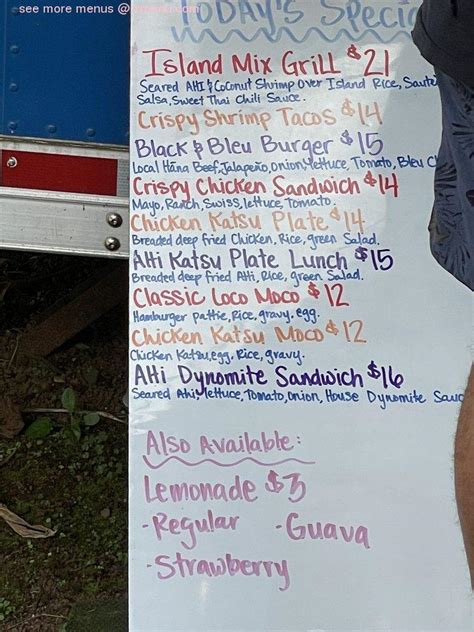 see more menus @
TODAY'S Specia
Island Mix Grill $21
Seared Ahi & Coconut Shrimp Over Island Rice, Saute
Salsa, Sweet Thai Chili Sauce.
Crispy Shrimp Tacos $14
Black & Bleu Burger $15
Local Hāna Beef, Jalapeño, onion, lettuce, Tomato, Bleu Ch
Crispy Chicken Sandwich $14
Mayo, Ranch, Swiss, lettuce, Tomato.
Chicken Katsu Plate $14
Breaded deep fried Chicken, Rice, green Salad.
Ahi Katsu Plate Lunch $15
Breaded deep fried Ahi, Rice, green Salad.
Classic Loco Moco $12
Hamburger pattie, Rice, gravy, egg.
Chicken Katsu Moco $12
Chicken Katsu, egg, Rice, gravy.
Ahi Dynomite Sandwich $16
Seared Ahi, lettuce, Tomato, Onion, House Dynomite Sauc
Also Available:
Lemonade $3
-Regular -Guava
-Strawberry